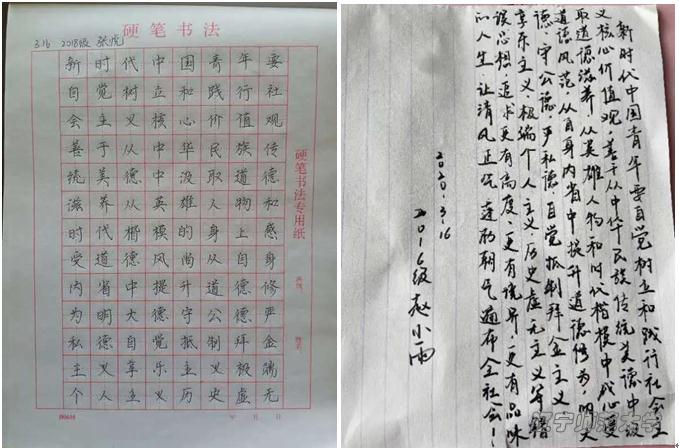 硬笔书法
3.16 2018级 张虎
新时代中国青年要
自觉树立和践行社
会主义核心价值观
善于从中华民族传
统美德中汲取道德
滋养从英雄人物和
时代楷模的身上感
受道德风尚从自身
内省中提升道德修
为明大德守公德严
私德自觉抵制拜金
主义享乐主义极端
个人主义历史虚无
硬笔书法专用纸
年 月 日
新时代中国青年要自觉树立和践行社会主
义核心价值观，善于从中华民族传统美德中汲
取道德滋养，从英雄人物和时代楷模中感受
道德风范，从自身内省中提升道德修为，明大
德，守公德，严私德，自觉抵制拜金主义
享乐主义，极端个人主义，历史虚无主义等错
误思想，追求更有高度、更有境界、更有品味
的人生，让清风正气、蓬勃朝气遍布全社会！
2020.3.16
2016级赵小雨